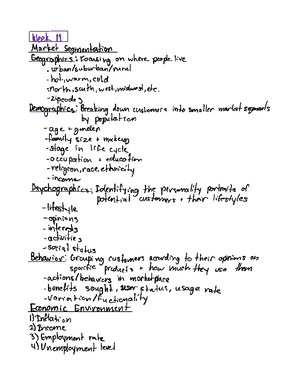 Week 11
Market Segmentation
Geographics: Focusing on where people live
- urban/suburban/rural
- hot, warm, cold
- north, south, west, midwest, etc.
- zipcodes
Demographics: Breaking down customers into smaller market segments
by population
- age + gender
- family size + makeup
- stage in life cycle
- occupation + education
- religion, race, ethnicity
- income
Psychographics: Identifying the personality portraits of
potential customers + their lifestyles
- lifestyle
- opinions
- interests
- activities
- social status
Behavior: Grouping customers according to their opinions on
specific products + how much they use them
- actions/behaviors in marketplace
- benefits sought, user status, usage rate
- variation/fuctionality
Economic Environment
1) Inflation
2) Income
3) Employment rate
4) Unemployment level